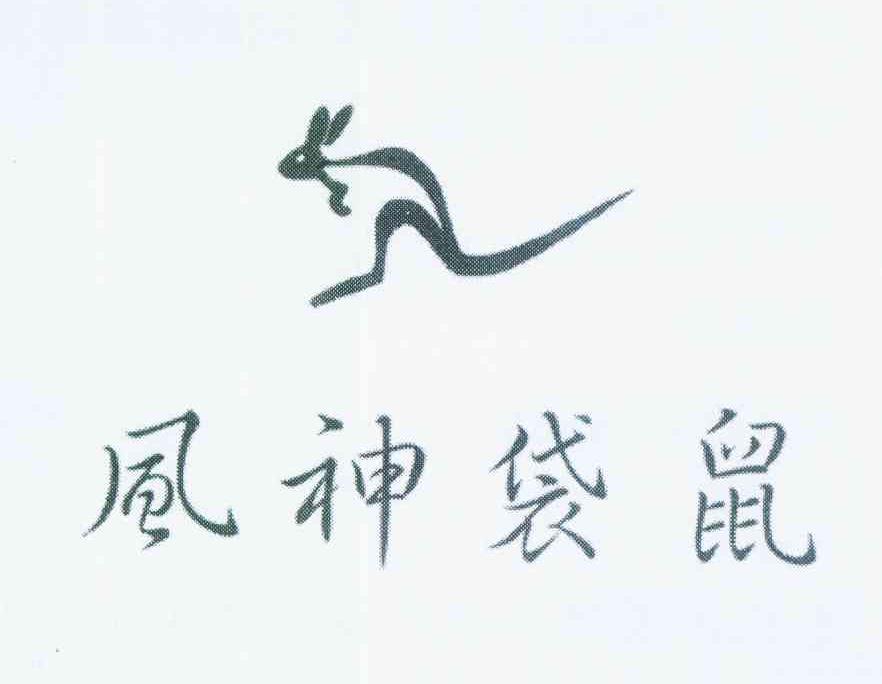 風神袋鼠